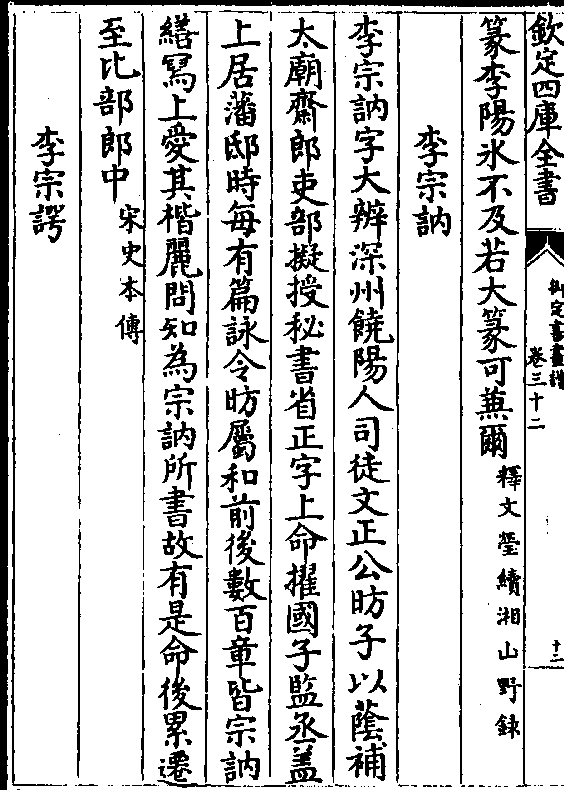 欽定四庫全書
御定書畫譜
卷三十二
十二
篆李陽氷不及若大篆可兼爾釋文瑩續湘山野錄
李宗訥
李宗訥字大辨深州饒陽人司徒文正公昉子以蔭補
太廟齋郎吏部擬授秘書省正字上命擢國子監丞蓋
上居藩邸時每有篇詠令昉屬和前後數百章皆宗訥
繕寫上愛其楷麗問知為宗訥所書故有是命後累遷
至比部郎中宋史本傳
李宗諤